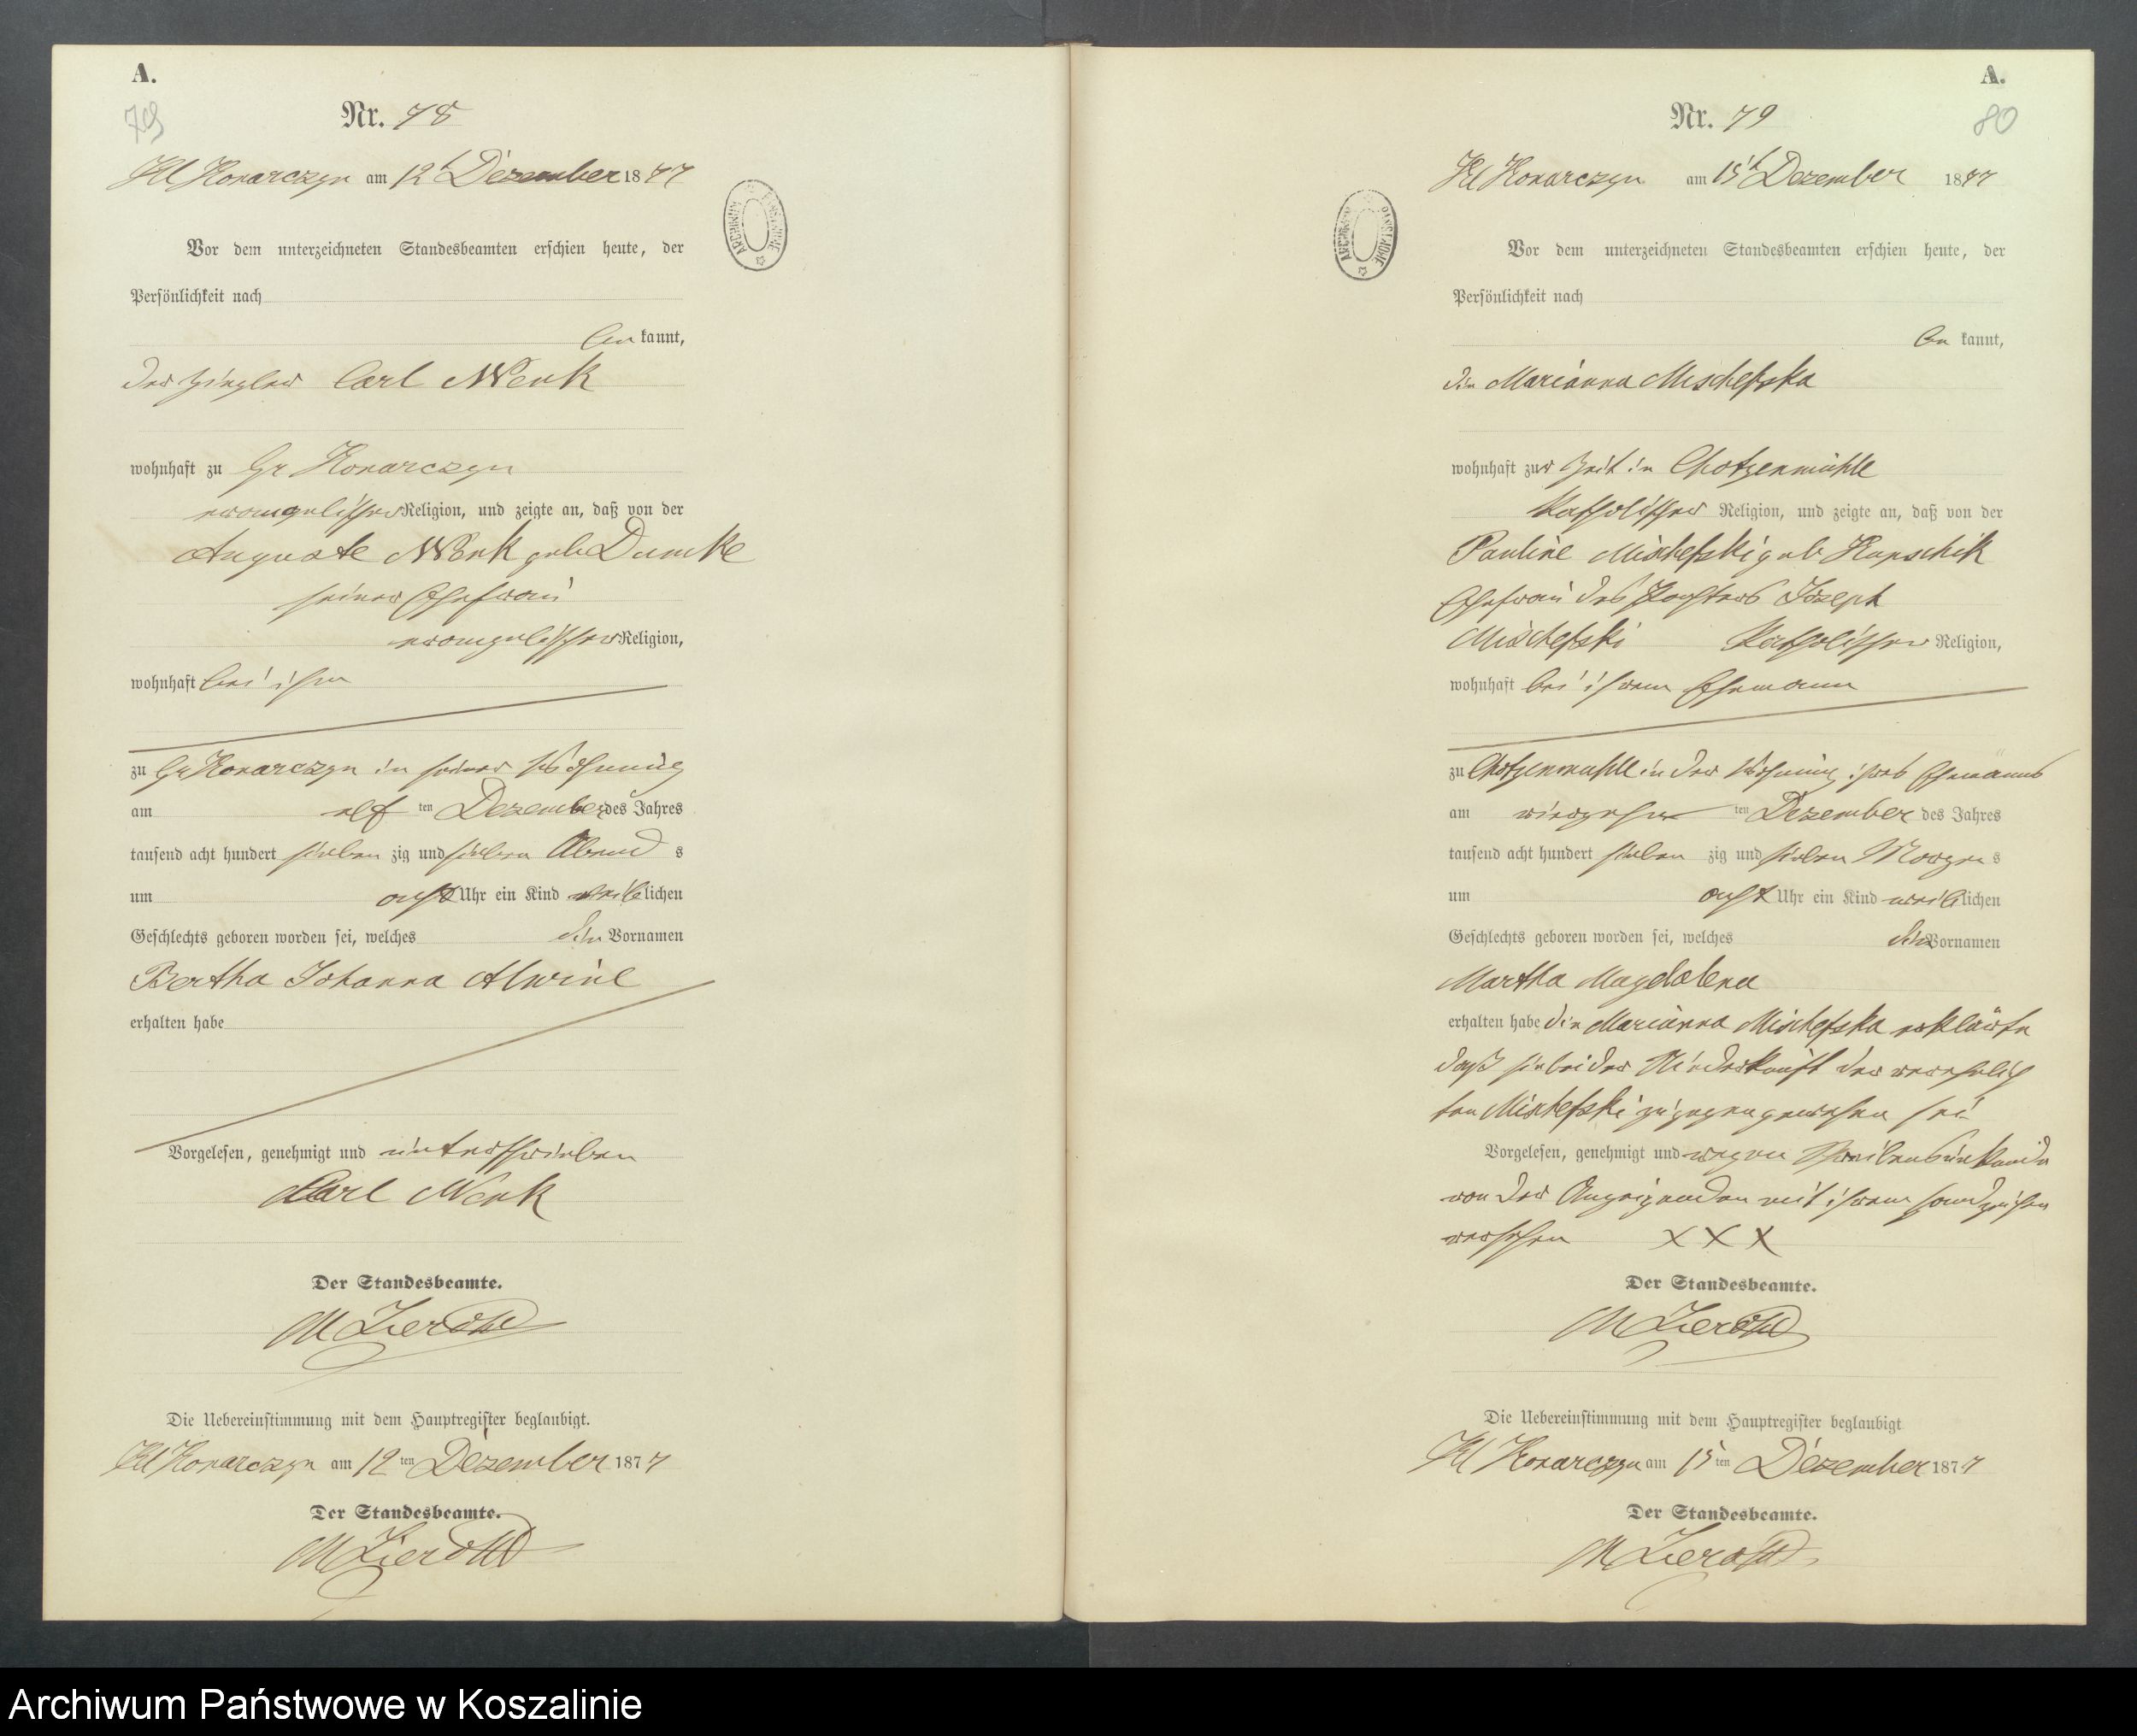 A.
79
Nr. 78
Kl Konarczyn am 12t Dezember 1877
Vor dem unterzeichneten Standesbeamten erschien heute, der
Persönlichkeit nach
be kannt,
der Ziegler Carl Wenk
wohnhaft zu Gr Konarczyn
evangelischer Religion, und zeigte an, daß von der
Auguste Wenk geb Dumke
seiner Ehefrau
evangelischer Religion,
wohnhaft bei ihm
zu Gr Konarczyn in seiner Wohnung
am elf ten Dezember des Jahres
tausend acht hundert sieben zig und sieben Abend s
um acht Uhr ein Kind weiblichen
Geschlechts geboren worden sei, welches die Vornamen
Bertha Johanna Alwine
erhalten habe
Vorgelesen, genehmigt und unterschrieben
Carl Wenk
Der Standesbeamte.
M Zierold
Die Uebereinstimmung mit dem Hauptregister beglaubigt.
Kl Konarczyn am 12 ten Dezember 1877
Der Standesbeamte.
M Zierold
A.
80
Nr. 79
Kl Konarczyn am 15t Dezember 1877
Vor dem unterzeichneten Standesbeamten erschien heute, der
Persönlichkeit nach
be kannt,
die Marianna Mischefska
wohnhaft zur Zeit in Chotzenmühle
Katholischer Religion, und zeigte an, daß von der
Pauline Mischefski geb Kapschik
Ehefrau des Joseph
Mischefski Katholischer Religion,
wohnhaft bei ihrem Ehemann
zu Chotzenmuhle in der Wohnung ihres Ehemanns
am vierzehn ten Dezember des Jahres
tausend acht hundert sieben zig und sieben Morgen s
um acht Uhr ein Kind weiblichen
Geschlechts geboren worden sei, welches die Vornamen
Martha Magdalena
erhalten habe die Marianna Mischefska erklärte
daß sie bei der Niederkunft der verehelich
ten Mischefski zugegen gewesen sei
Vorgelesen, genehmigt und wegen Schreibensunkunde
von der Anzeigenden mit ihrem Handzeichen
versehen XXX
Der Standesbeamte.
M Zierold
Die Uebereinstimmung mit dem Hauptregister beglaubigt
Kl Konarczyn am 15 ten Dezember 1877
Der Standesbeamte.
M Zierold
Archiwum Państwowe w Koszalinie